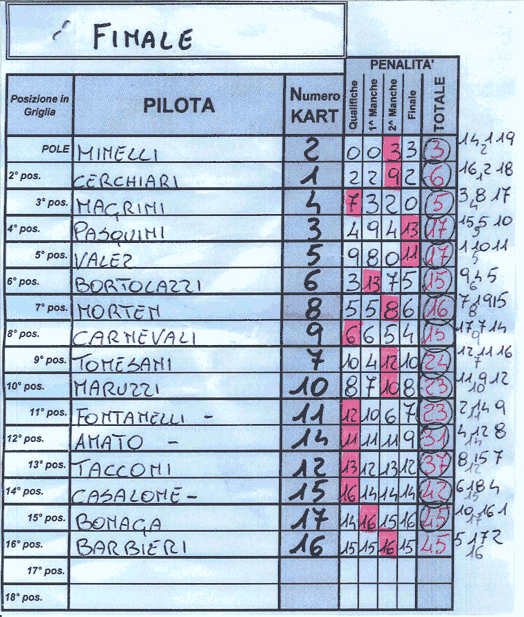 FINALE
PENALITA'
Posizione in Griglia PILOTA Numero KART Qualifiche 1^ Manche 2^ Manche Finale TOTALE
POLE MINELLI 2 0 0 3 3 3 14 2 1 19
2° pos. CERCHIARI 1 2 2 9 2 6 16 1 2 18
3° pos. MAGRINI 4 7 3 2 0 5 3 4 8 17
4° pos. PASQUINI 3 4 9 4 13 17 15 5 10
5° pos. VALEZ 5 9 8 0 11 17 1 10 11
6° pos. BORTOLAZZI 6 3 13 7 5 15 9 4 5
7° pos. MORTEN 8 5 5 8 6 16 7 19 15
8° pos. CARNEVALI 9 6 6 5 4 15 17 7 14
9° pos. TOMESANI 7 10 4 12 10 24 12 11 16
10° pos. MARUZZI 10 8 7 10 8 23 11 9 12
11° pos. FONTANELLI - 11 12 10 6 7 23 2 14 9
12° pos. AMATO - 14 11 11 11 9 31 4 12 8
13° pos. TACCONI 12 13 12 13 12 37 8 15 7
14° pos. CASALONE - 15 16 14 14 14 42 6 18 4
15° pos. BONAGA 17 14 16 15 16 45 10 16 1
16° pos. BARBIERI 16 15 15 16 15 45 5 17 2
17° pos.
18° pos.